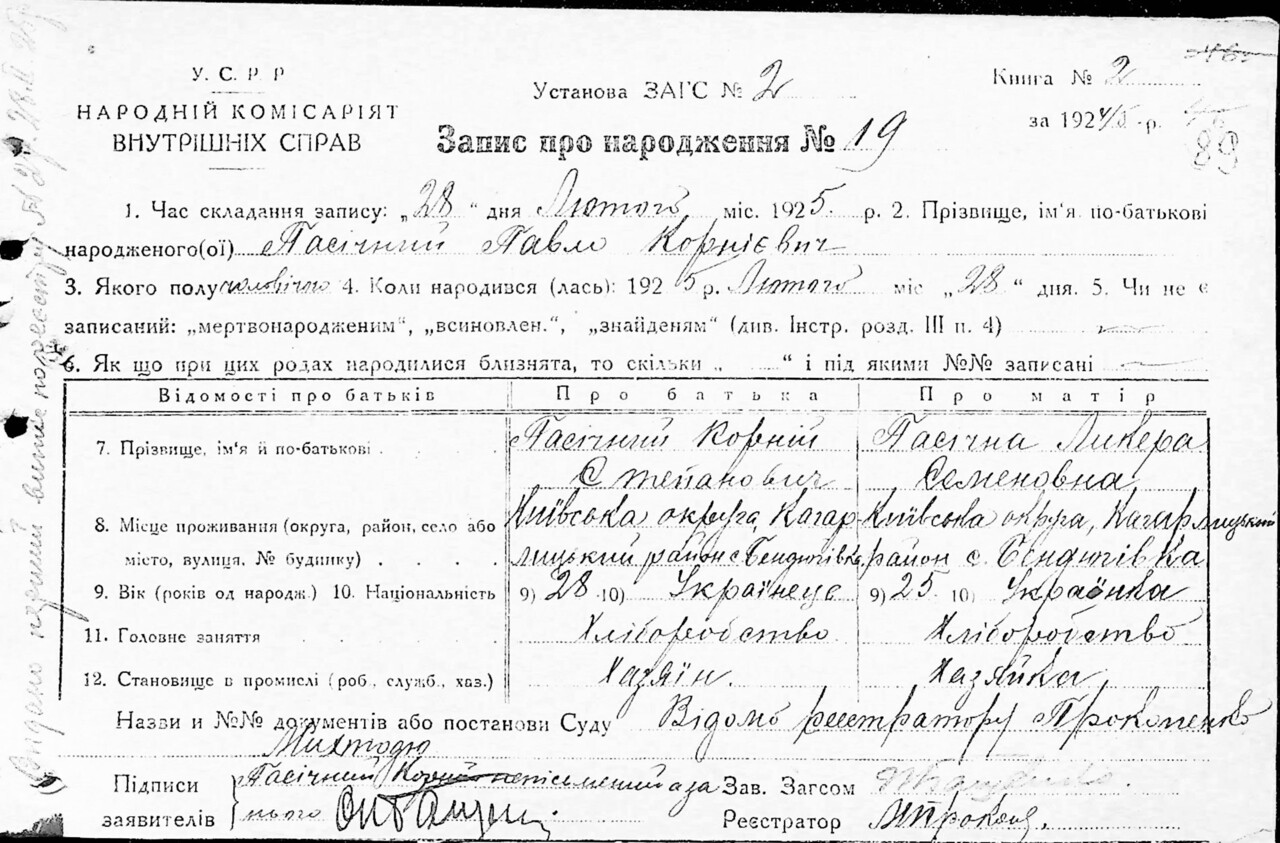 У. С. Р Р
НАРОДНІЙ КОМІСАРІЯТ
ВНУТРІШНІХ СПРАВ
Установа ЗАГС № 2
Книга № 2
за 1924/5 р.
89
Запис про народження № 19
1. Час складання запису: „28“ дня Лютого міс. 1925 р. 2. Прізвище, ім'я по-батькові
народженого(ої) Пасічний Павло Корнієвич
3. Якого полу чоловічого 4. Коли народився (лась): 1925 р. Лютого міс „28“ дня. 5. Чи не є
записаний: „мертвонародженим“, „всиновлен.“, „знайденям“ (див. Інстр. розд. III п. 4)
6. Як що при цих родах народилися близнята, то скільки „ “ і під якими №№ записані
Відомості про батьків Про батька Про матір
7. Прізвище, ім'я й по-батькові Пасічний Корній Степанович Пасічна Ликера Семеновна
8. Місце проживання (округа, район, село або місто, вулиця, № будинку) Київська округа, Кагарлицький район с. Бендюгівка Київська округа, Кагарлицький район с. Бендюгівка
9. Вік (років од народж.) 10. Національність 9) 28 10) Українець 9) 25 10) Українка
11. Головне заняття Хліборобство Хліборобство
12. Становище в промислі (роб., служб., хаз.) Хазяїн. Хазяйка
Назви и №№ документів або постанови Суду Відомо реєстратору Прокопенко
Підписи заявителів Пасічний Корній неписьменний а за нього
Зав. Загсом
Реєстратор МПрокоп